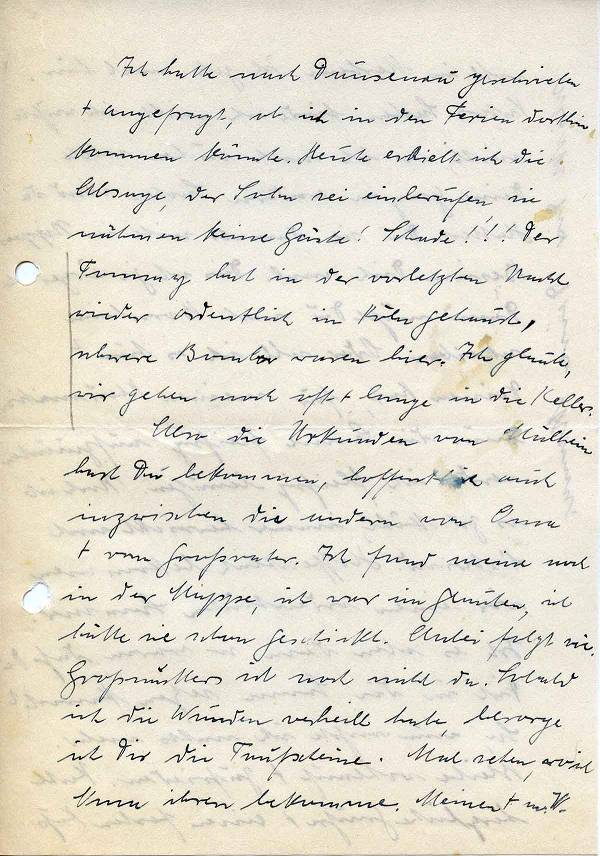 Ich hatte nach Dausenau geschrieben
+ angefragt, ob ich in den Ferien dorthin
kommen könnte. Heute erhielt ich die
Absage, der Sohn sei einberufen, sie
nähmen keine Gäste! Schade!!! Der
Tommy hat in der vorletzten Nacht
wieder ordentlich in Köln gehaust,
schwere Bomber waren hier. Ich glaube,
wir gehen noch oft + lange in die Keller.
Also die Urkunden von Mülheim
hast Du bekommen, hoffentlich auch
inzwischen die andern von Oma
+ vom Großvater. Ich fand meine noch
in der Mappe, ich war im Glauben, ich
hätte sie schon geschickt. Anbei folgt sie.
Großmutters ist noch nicht da. Sobald
ich die Wunden verheilt habe, besorge
ich Dir die Taufscheine. Mal sehen, wo ich
ihren bekomme. Meinen + m. W.